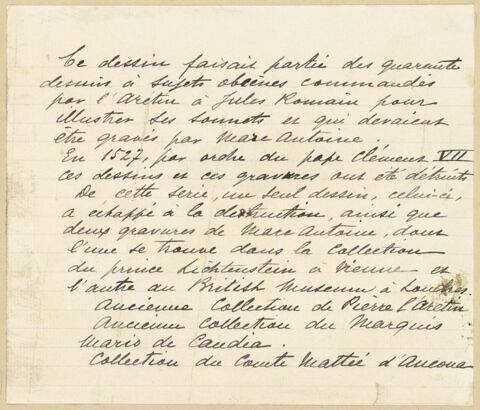 Ce dessin faisait partie des quarante
dessins à sujets obcènes commandés
par l'Aretin à Jules Romain pour
illustrer ses sonnets et qui devaient
être gravés par Marc Antoine.
En 1527, par ordre du pape Clément VII
ces dessins et ces gravures ont été détruits
De cette serie, un seul dessin, celui-ci,
a échappé à la destruction, ainsi que
deux gravures de Marc Antoine, dont
l'une se trouve dans la Collection
du prince Lichtenstein à Vienne et
l'autre au British Museum à Londres.
Ancienne Collection de Pierre l'Aretin
Ancienne Collection du Marquis
Mario de Candia.
Collection du Comte Mattei d'Ancona